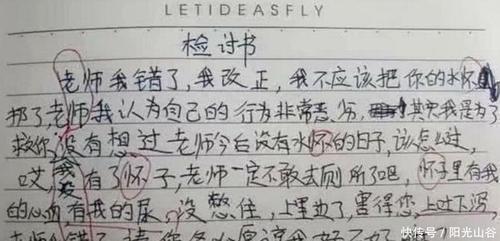 LETIDEASFLY
检讨书
老师我错了,我改正,我不应该把你的水怀
挪了,老师我认为自己的行为非常恶劣,其实我是为了
救你,没有想过老师今后没有水怀的日子,该怎么过,
哎,我有了怀子,老师一定不敢去厕所了吧,怀子里有我
的心血有我的尿,没憋住,上里边了,害得您上吐下泻
快传号/阳光山谷